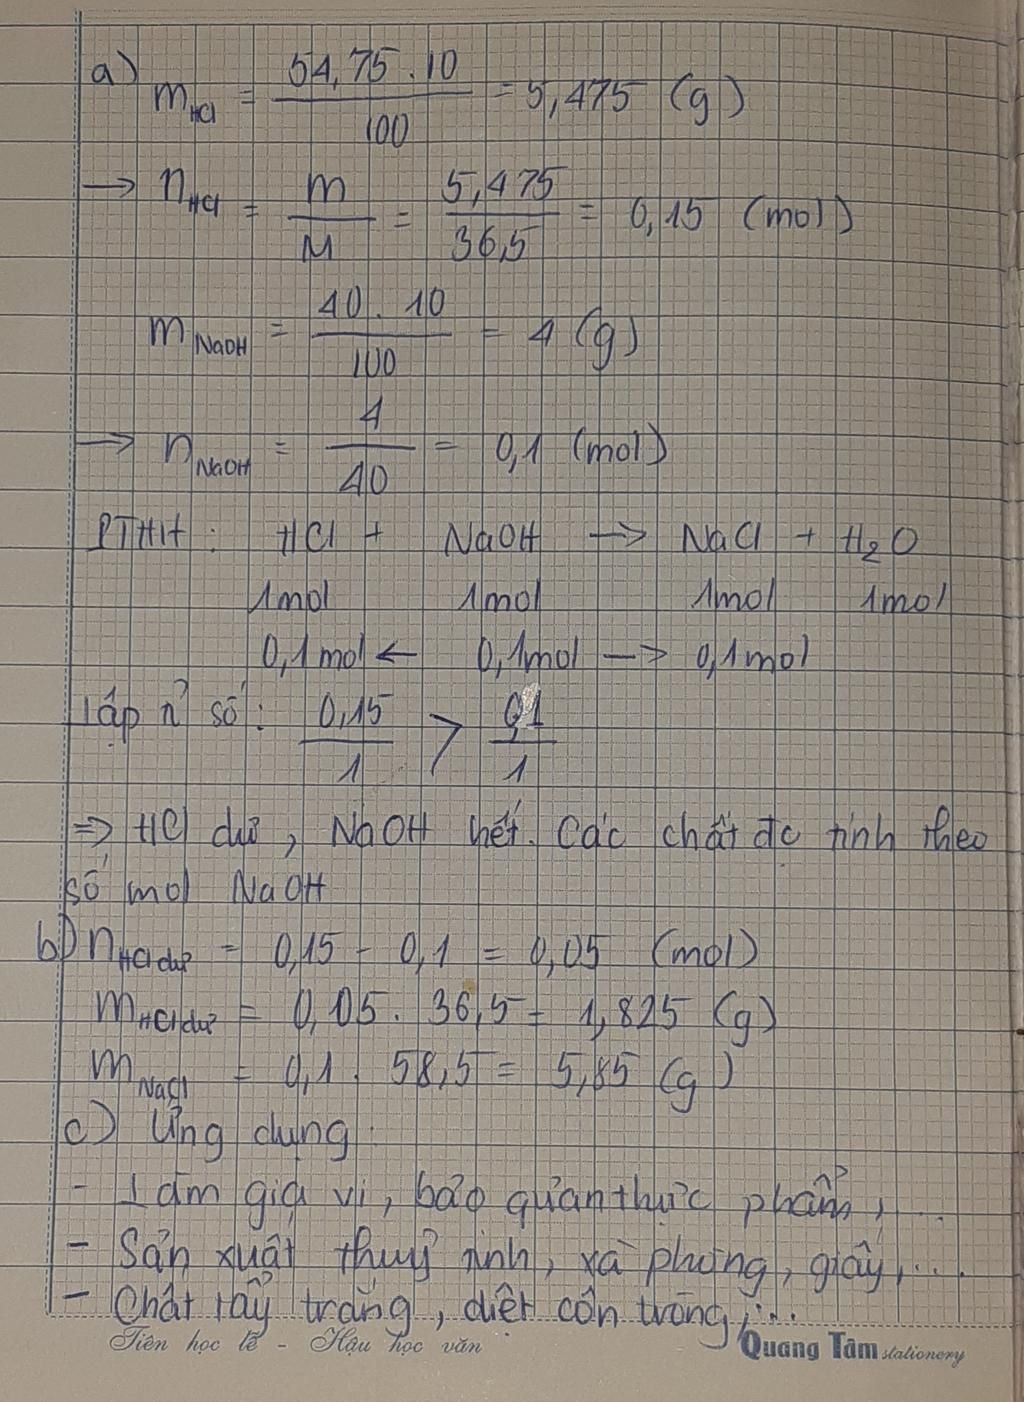 a) m_HCl = 54,75 . 10 / 100 = 5,475 (g)
→ n_HCl = m / M = 5,475 / 36,5 = 0,15 (mol)
m_NaOH = 40 . 10 / 100 = 4 (g)
→ n_NaOH = 4 / 40 = 0,1 (mol)
PTHH : HCl + NaOH → NaCl + H₂O
1mol 1mol 1mol 1mol
0,1mol ← 0,1mol → 0,1mol
Lập tỉ số : 0,15 / 1 > 0,1 / 1
=> HCl dư, NaOH hết. Các chất đc tính theo
số mol NaOH
b) n_HCl dư = 0,15 - 0,1 = 0,05 (mol)
m_HCl dư = 0,05 . 36,5 = 1,825 (g)
m_NaCl = 0,1 . 58,5 = 5,85 (g)
c) Ứng dụng
- Làm gia vị, bảo quản thực phẩm, ...
- Sản xuất thuỷ tinh, xà phòng, giấy, ...
- Chất tẩy trắng, diệt côn trùng, ...
Tiên học lễ - Hậu học văn
Quang Tâm stationery